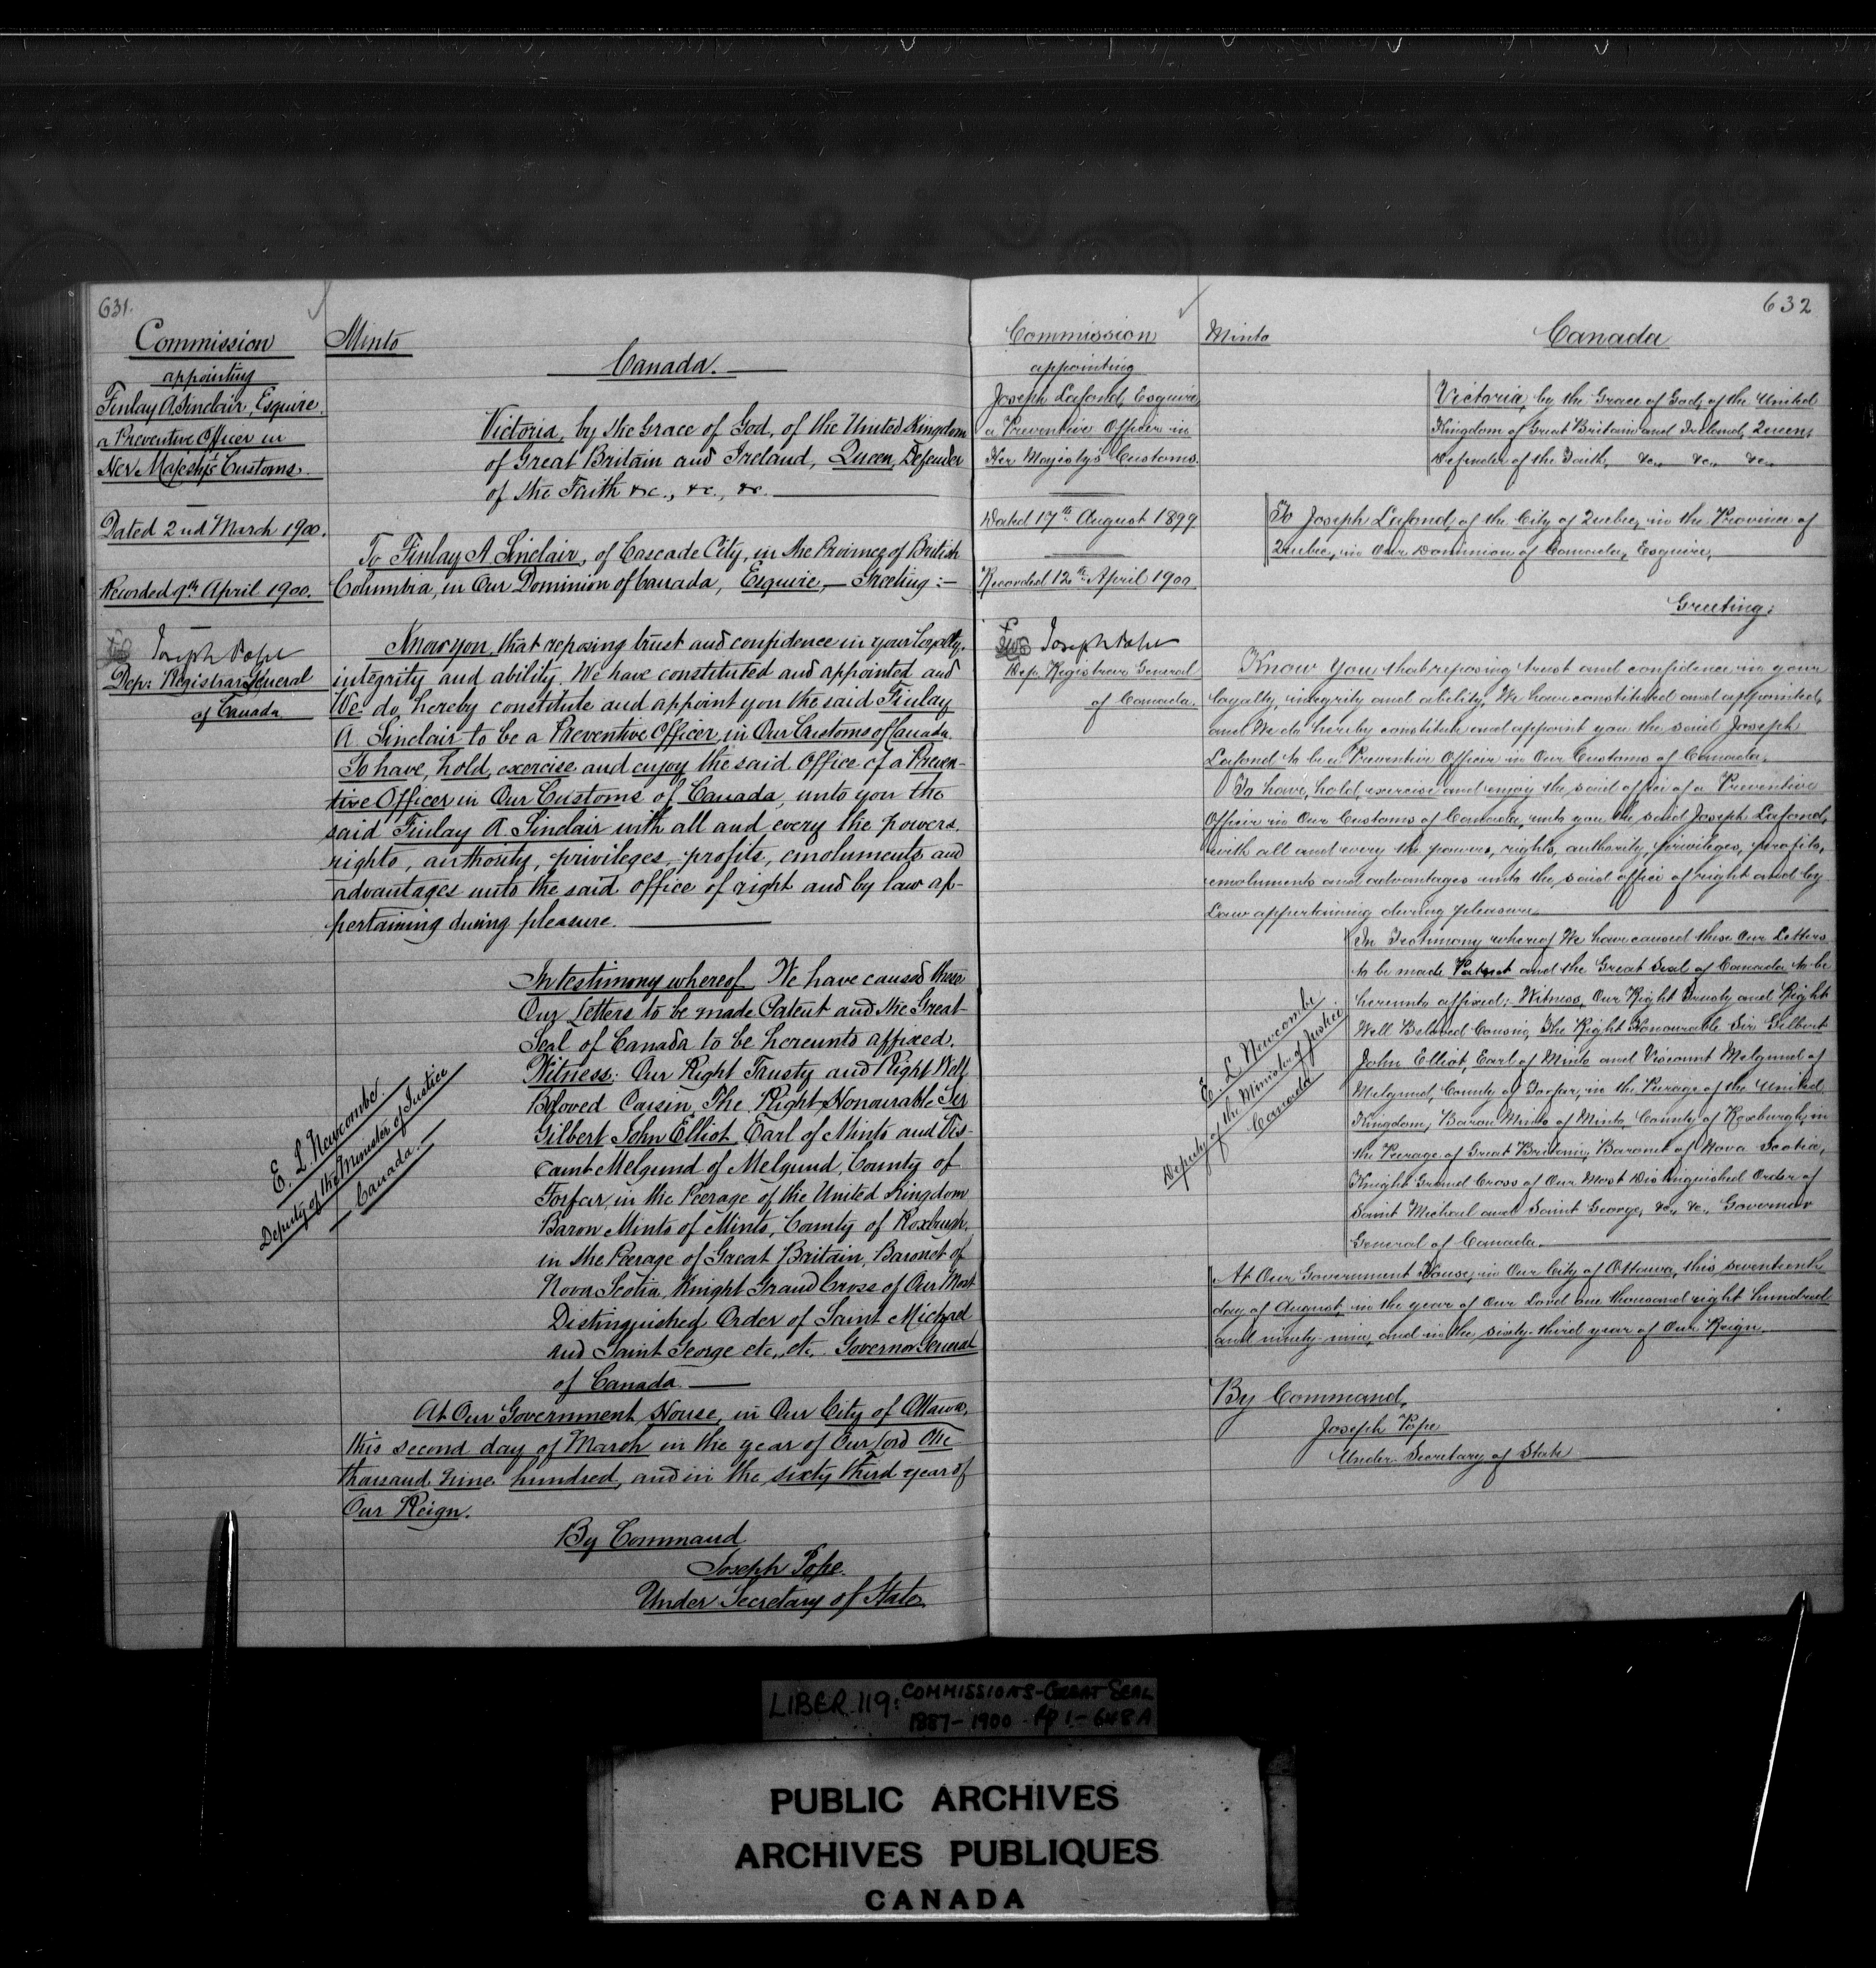 631.
Commission
appointing
Finlay A Sinclair, Esquire.
a Preventive Officer in
Her Majesty's Customs.
Dated 2nd March 1900.
Recorded 9th April 1900.
Joseph Pope
Dep: Registrar General
of Canada
Minto
Canada.
Victoria, by the Grace of God, of the United Kingdom
of Great Britain and Ireland, Queen, Defender
of the Faith &c., &c., &c.
To Finlay A Sinclair, of Cascade City, in the Province of British
Columbia, in Our Dominion of Canada, Esquire, — Greeting :—
Know you, that reposing trust and confidence in your loyalty,
integrity and ability. We have constituted and appointed and
We do hereby constitute and appoint you the said Finlay
A. Sinclair to be a Preventive Officer in Our Customs of Canada.
To have, hold, exercise and enjoy the said Office of a Preven-
tive Officer in Our Customs of Canada, unto you the
said Finlay A. Sinclair with all and every the powers,
rights, authority, privileges, profits, emoluments and
advantages unto the said office of right and by law ap-
pertaining during pleasure.
In testimony whereof We have caused these
Our Letters to be made Patent and the Great
Seal of Canada to be hereunto affixed.
Witness: Our Right Trusty and Right Well
Beloved Cousin, The Right Honourable Sir
Gilbert John Elliot, Earl of Minto and Vis-
count Melgund of Melgund, County of
Forfar, in the Peerage of the United Kingdom
Baron Minto of Minto, County of Roxburgh,
in the Peerage of Great Britain, Baronet of
Nova Scotia, Knight Grand Cross of Our Most
Distinguished Order of Saint Michael
and Saint George etc., etc. Governor General
of Canada.
E. L. Newcombe.
Deputy of the Minister of Justice
Canada.
At Our Government House, in Our City of Ottawa,
this second day of March in the year of Our Lord One
thousand nine hundred, and in the sixty third year of
Our Reign.
By Command
Joseph Pope.
Under Secretary of State
632
Commission
appointing
Joseph Lafond, Esquire,
a Preventive Officer in
Her Majesty's Customs.
Dated 17th August 1899
Recorded 12th April 1900
Joseph Pope
Dep. Registrar General
of Canada.
Minto
Canada
Victoria, by the Grace of God, of the United
Kingdom of Great Britain and Ireland, Queen,
Defender of the Faith, &c., &c., &c.,
To Joseph Lafond, of the City of Quebec, in the Province of
Quebec, in Our Dominion of Canada, Esquire,
Greeting:
Know You that reposing trust and confidence in your
loyalty, integrity and ability, We have constituted and appointed,
and We do hereby constitute and appoint you the said Joseph
Lafond to be a Preventive Officer in Our Customs of Canada.
To have, hold, exercise and enjoy the said office of a Preventive
Officer in Our Customs of Canada, unto you the said Joseph Lafond,
with all and every the powers, rights, authority, privileges, profits,
emoluments and advantages unto the said office of right and by
Law appertaining during pleasure.
In Testimony whereof We have caused these Our Letters
to be made Patent and the Great Seal of Canada to be
hereunto affixed: Witness, Our Right Trusty and Right
Well Beloved Cousin, The Right Honourable Sir Gilbert
John Elliot, Earl of Minto and Viscount Melgund of
Melgund, County of Forfar, in the Peerage of the United
Kingdom, Baron Minto of Minto, County of Roxburgh, in
the Peerage of Great Britain, Baronet of Nova Scotia,
Knight Grand Cross of Our Most Distinguished Order of
Saint Michael and Saint George, &c., &c., Governor
General of Canada.
E. L. Newcombe
Deputy of the Minister of Justice
Canada
At Our Government House, in Our City of Ottawa, this seventeenth
day of August, in the year of Our Lord one thousand eight hundred
and ninety-nine, and in the sixty-third year of Our Reign.
By Command,
Joseph Pope
Under Secretary of State
LIBER 119: COMMISSIONS - GREAT SEAL
1887-1900 - Pp 1 - 648A
PUBLIC ARCHIVES
ARCHIVES PUBLIQUES
CANADA